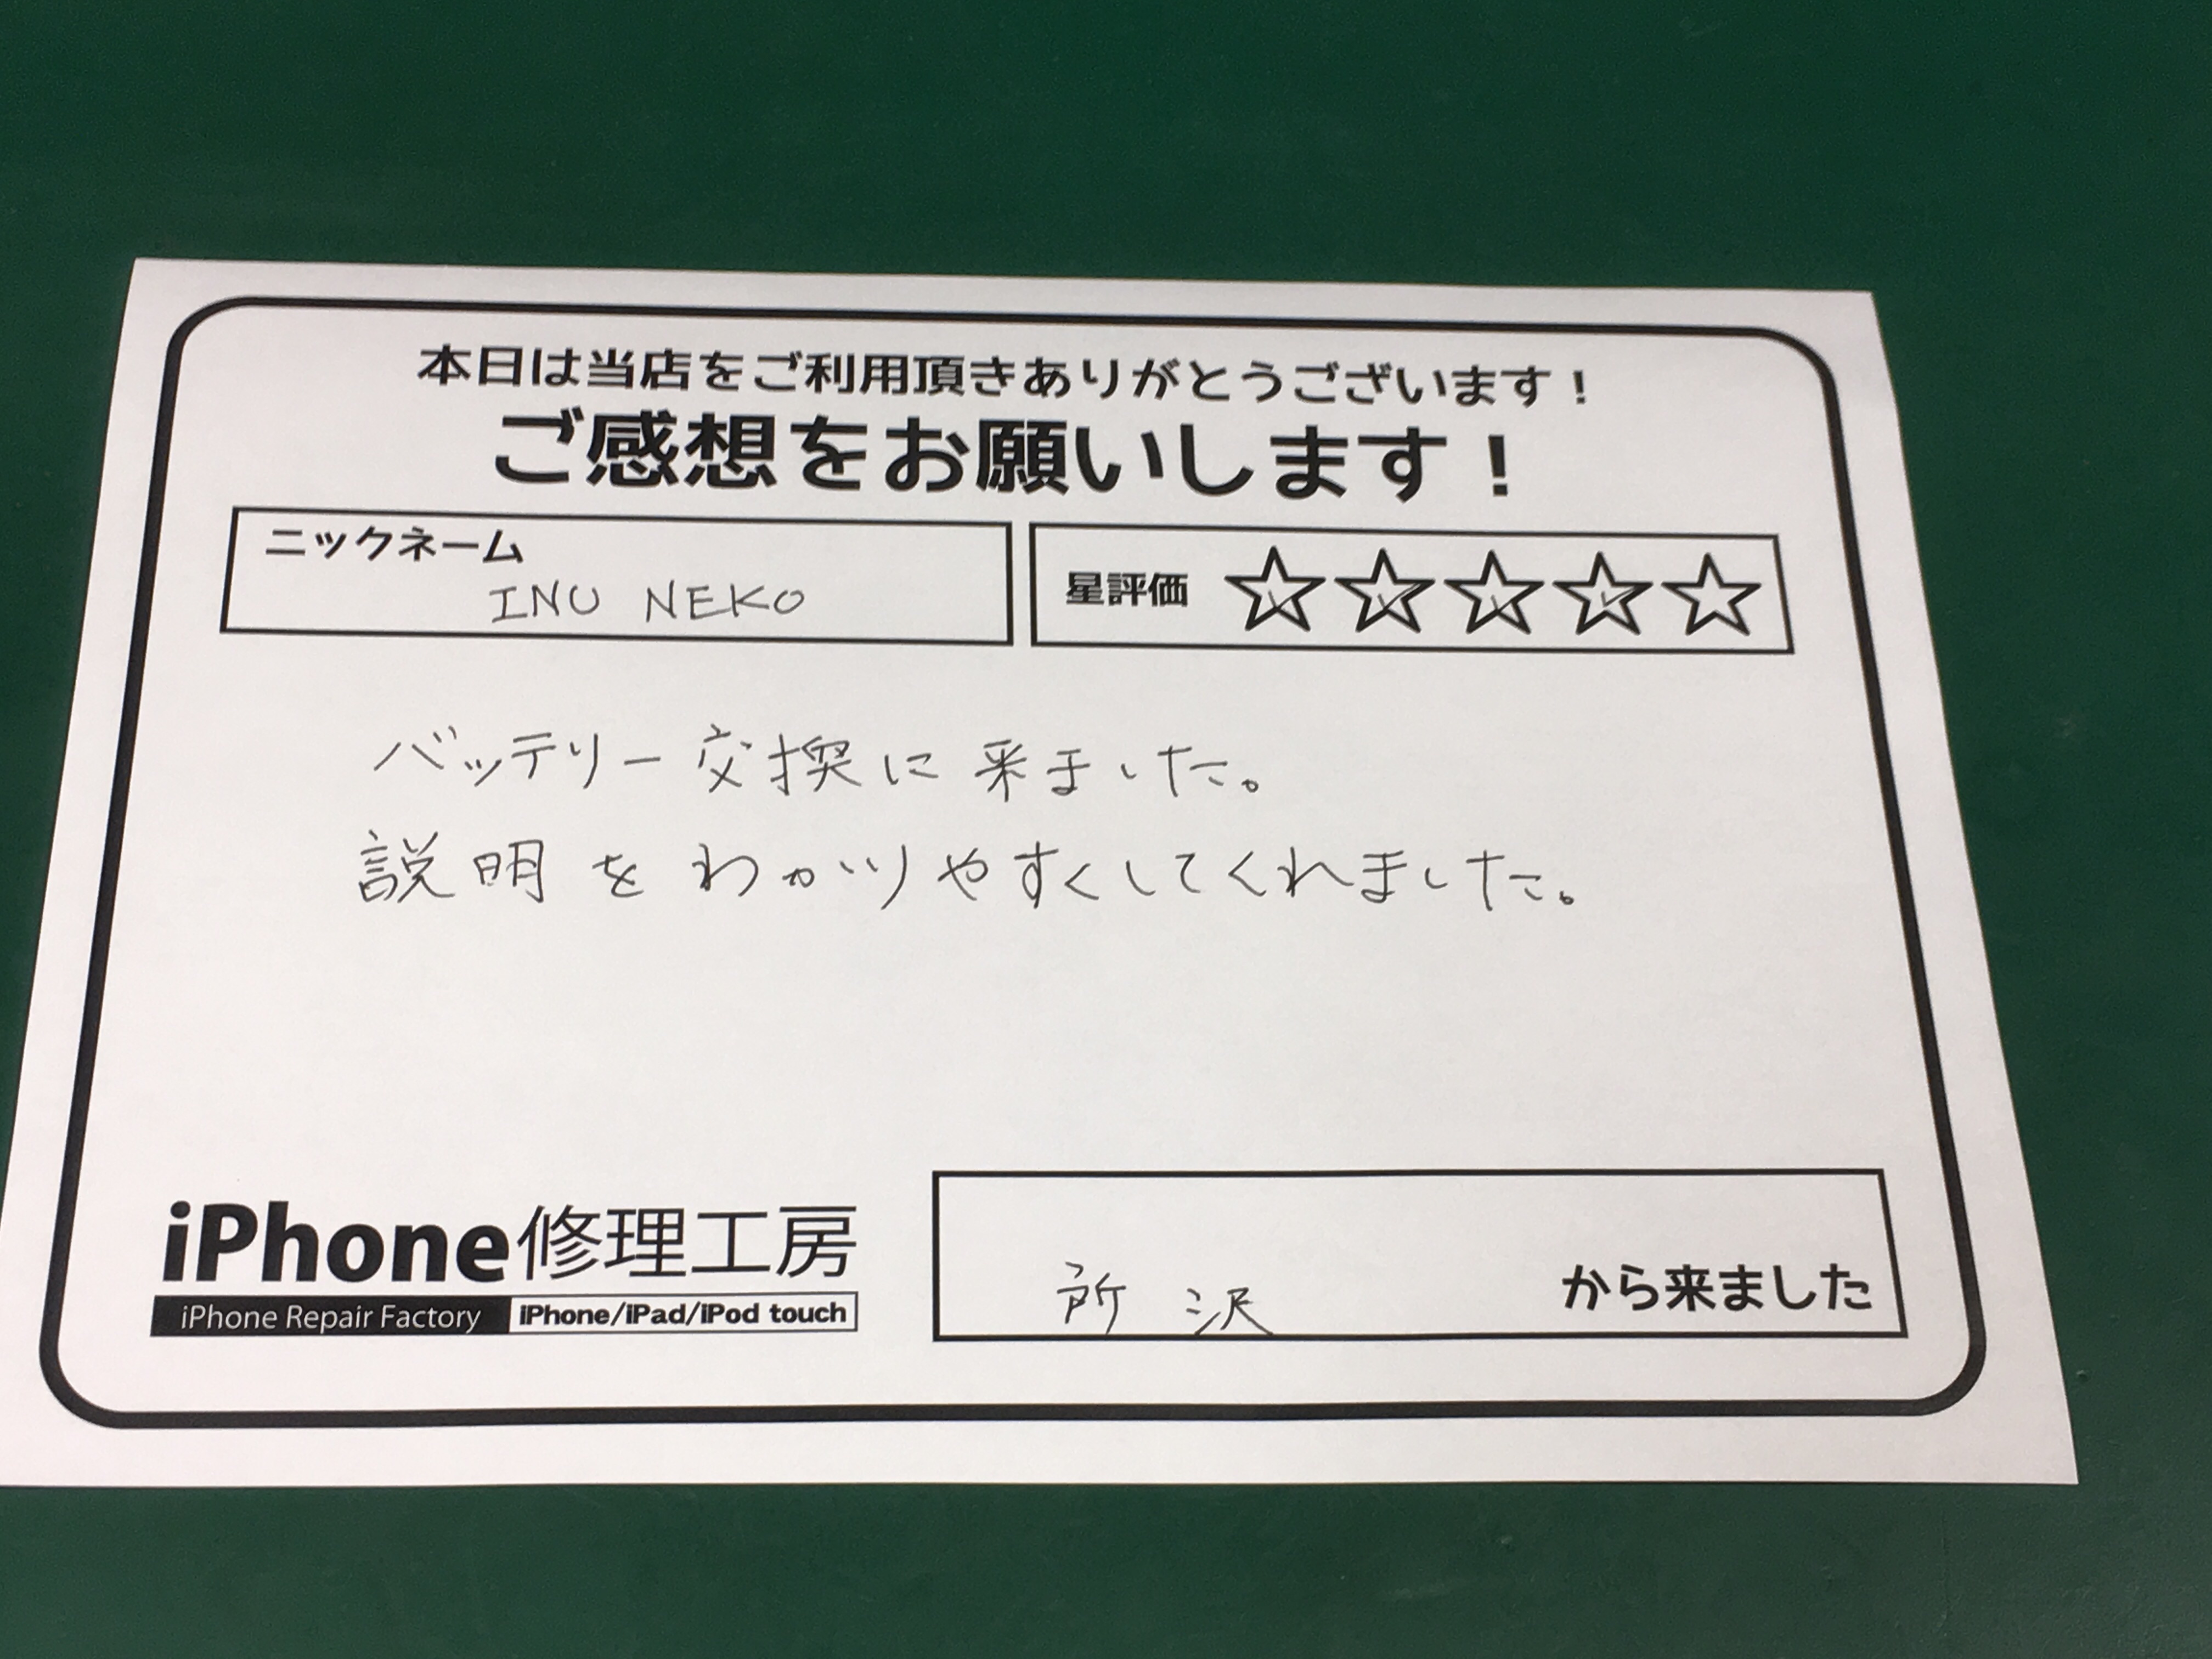 本日は当店をご利用頂きありがとうございます！
ご感想をお願いします！
ニックネーム
INU NEKO
星評価 ☆☆☆☆☆
バッテリー交換に来ました。
説明をわかりやすくしてくれました。
iPhone修理工房
iPhone Repair Factory iPhone/iPad/iPod touch
所沢 から来ました